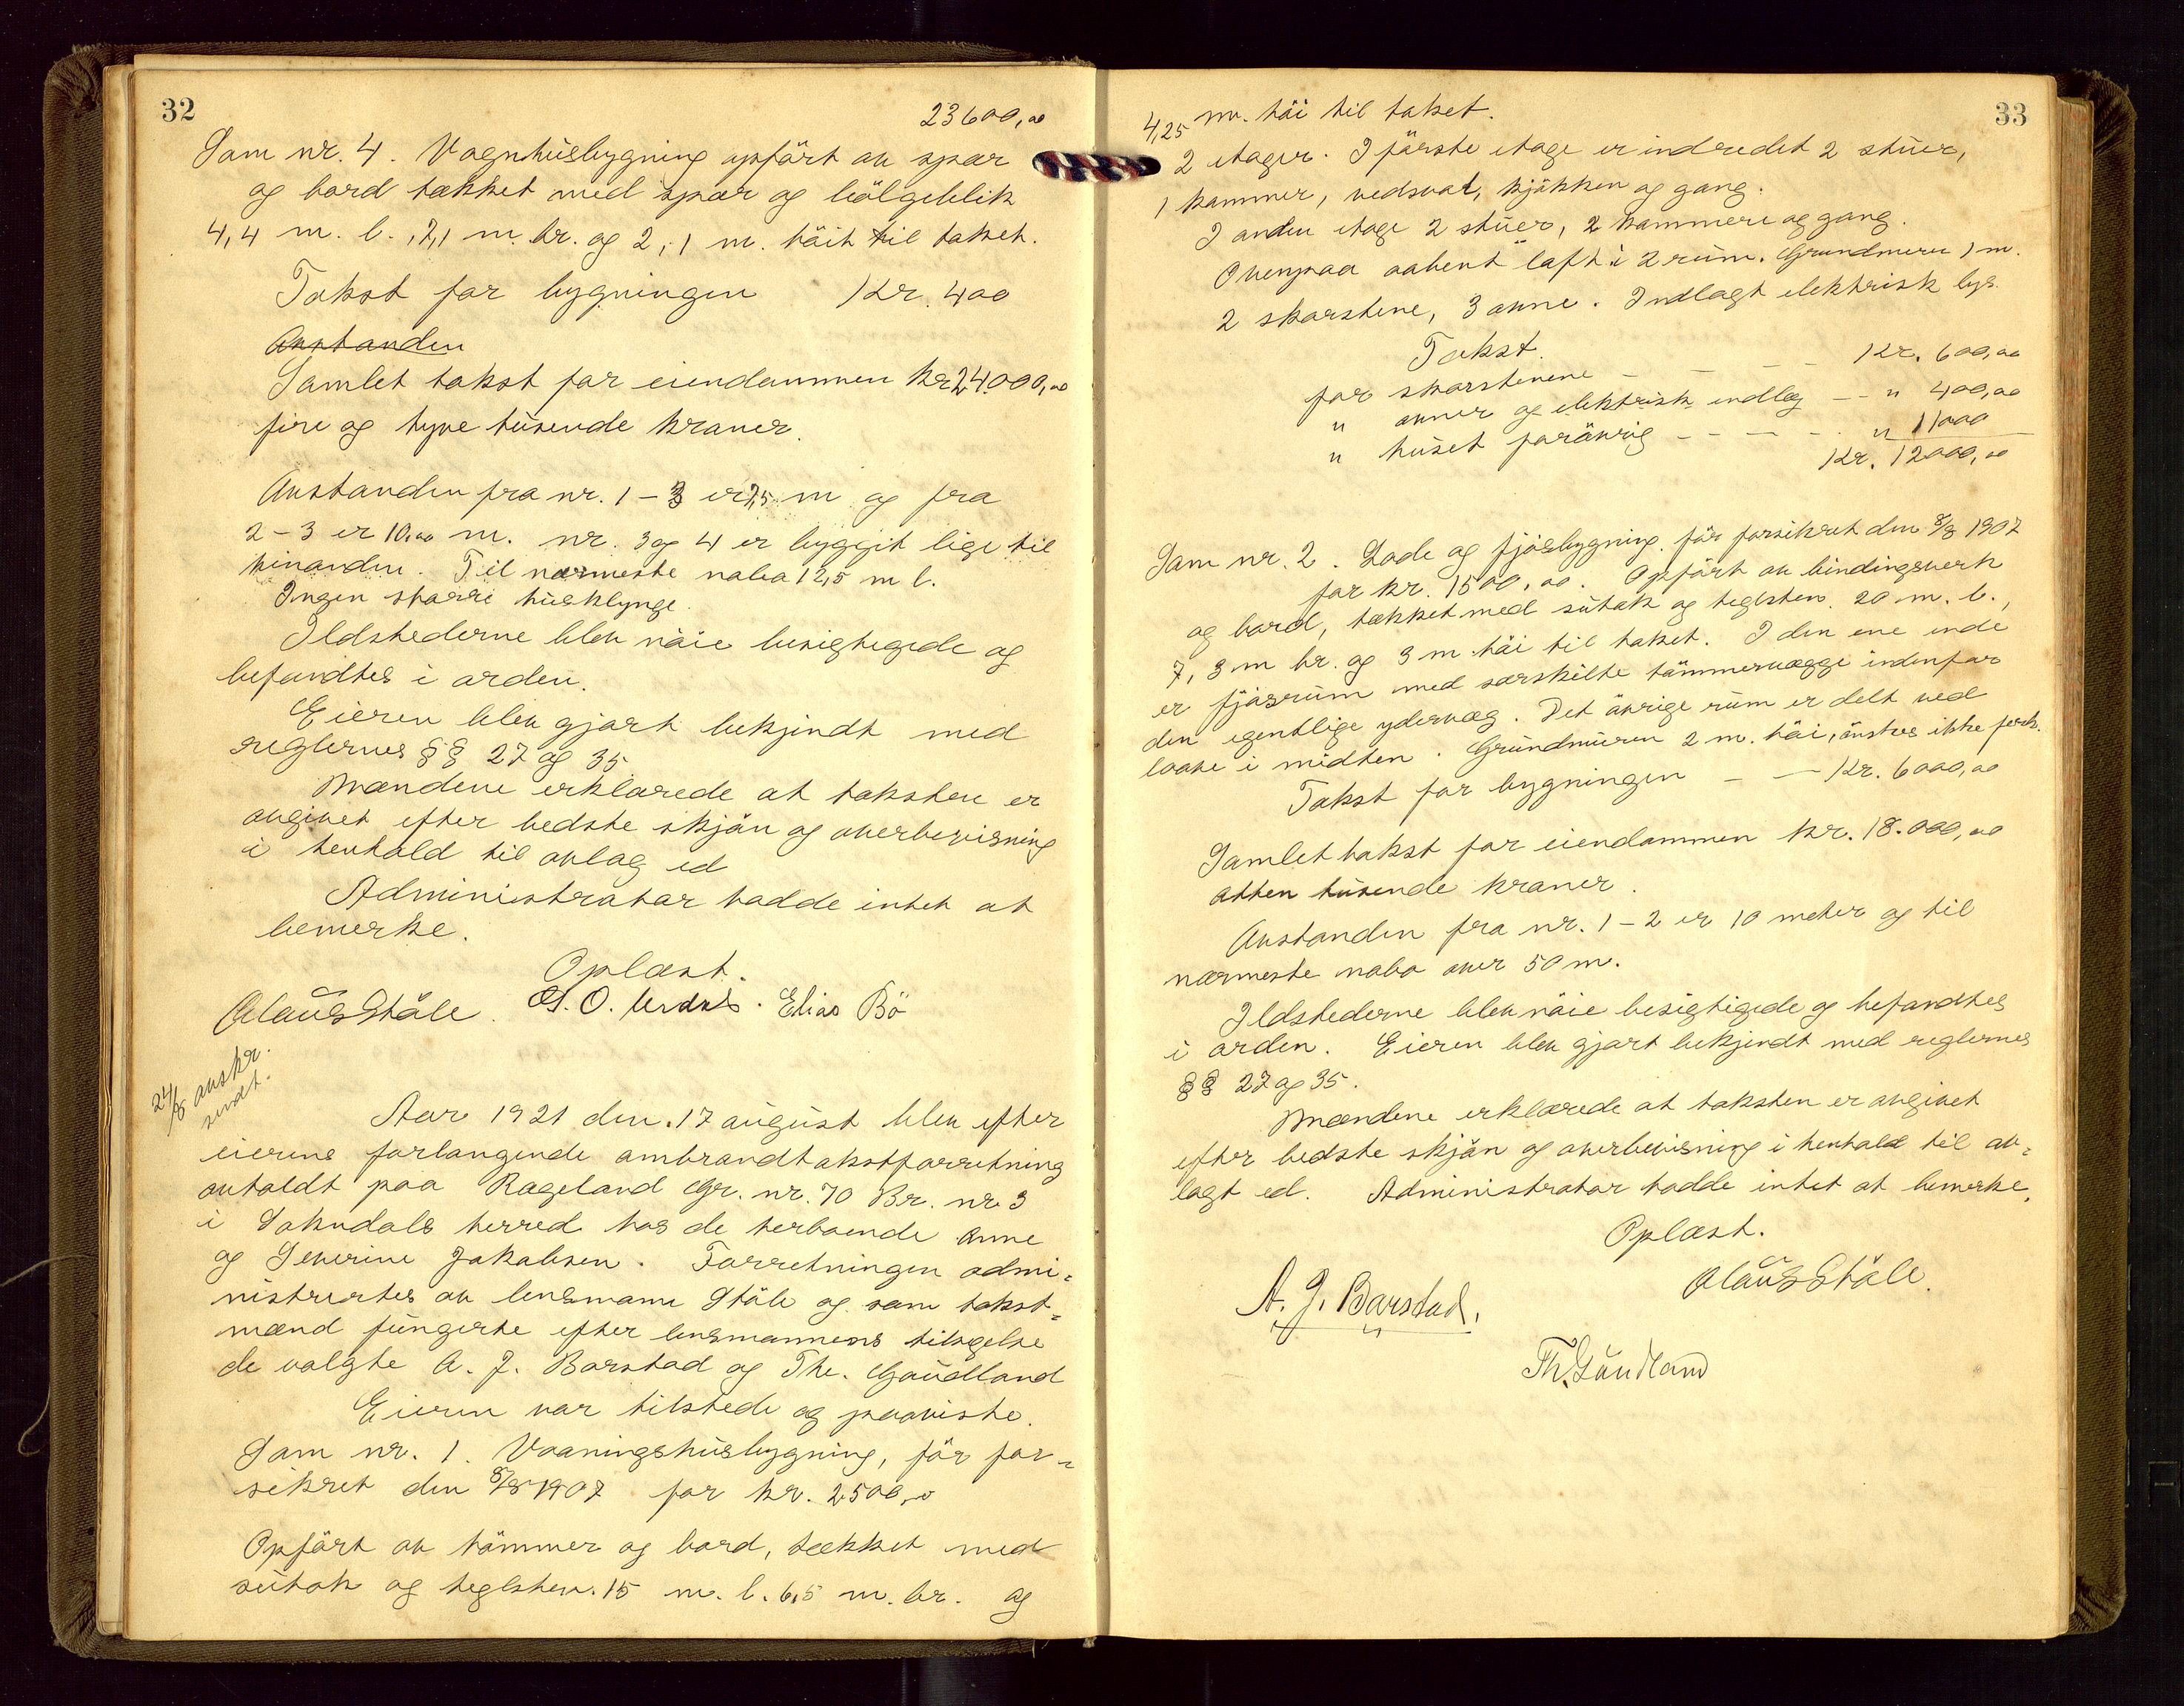 32
23600,00
Som nr. 4. Vognhusbygning opført av spær
og bord tækket med spær og bølgeblik
4,4 m. l., 2,1 m. br. og 2,1 m. høit til taket.
Takst for bygningen Kr. 400
Avstanden
Samlet takst for eiendommen kr 24.000,00
fire og tyve tusende kroner.
Avstanden fra nr. 1 - 3 er 7,5 m og fra
2 - 3 er 10,00 m. nr. 3 og 4 er byggit lige til
hinanden. Til nærmeste nabo 12,5 m l.
Ingen større husklynge.
Ildstederne blev nøie besigtigede og
befandtes i orden.
Eieren blev gjort bekjendt med
reglernes §§ 27 og 35
Mændene erklærede at taksten er
avgivet efter bedste skjøn og overbevisning
i henhold til avlag ed
Administrator hadde intet at
bemerke.
Oplæst.
Olaus Ståle. O. Elias Bö
24/8 avskr.
sendt.
Aar 1921 den 17 august blev efter
eierens forlangende ombrandtakstforretning
avholdt paa Rageland Gr. nr. 70 Br. nr 3
i Sokndals herred hos de herboende Anne
og Severine Jakobsen. Forretningen admi-
nistrertes av lensmann Ståle og som takst-
mænd fungerte efter lensmannens tilsigelse
de valgte A. J. Barstad og Th. Gaudland
Eieren var tilstede og paaviste.
Som nr. 1. Vaaningshusbygning, før for-
sikret den 8/8 1907 for kr. 2500,00
Opført av tømmer og bord, tækket med
sutak og teglsten. 15 m. l. 6,5 m. br. og
33
4,25 m. høi til taket.
2 etager. I første etage er indredet 2 stuer,
1 kammer, vedsval, kjøkken og gang.
I anden etage 2 stuer, 2 kammere og gang.
Ovenpaa aabent loft i 2 rum. Grundmuren 1 m.
2 skorstene, 3 ovne. Indlagt elektrisk lys.
Takst.
for skorstenene - - - Kr. 600,00
" ovner og elektrisk indlæg - - " 400,00
" huset forøvrig - - - - " 11000
Kr. 12000,00
Som nr. 2. Lade og fjøsbygning. før forsikret den 8/8 1907
for kr. 1500,00. Opført av bindingsverk
og bord, tækket med sutak og teglsten. 20 m. l.,
7,3 m br. og 3 m høi til taket. I den ene ende
er fjøsrum med særskilte tømmervægge indenfor
den egentlige ydervæg. Det øvrige rum er delt ved
laave i midten. Grundmuren 2 m. høi, ønskes ikke fork.
Takst for bygningen - - Kr. 6000,00
Samlet takst for eiendommen kr. 18.000,00
atten tusende kroner.
Avstanden fra nr. 1 - 2 er 10 meter og til
nærmeste nabo over 50 m.
Ildstederne blev nøie besigtigede og befandtes
i orden. Eieren blev gjort bekjendt med reglernes
§§ 27 og 35.
Mændene erklærede at taksten er avgivet
efter bedste skjøn og overbevisning i henhold til av-
lagt ed. Administrator hadde intet at bemerke.
Oplæst.
Olaus Ståle.
A. J. Barstad.
Th. Gaudland